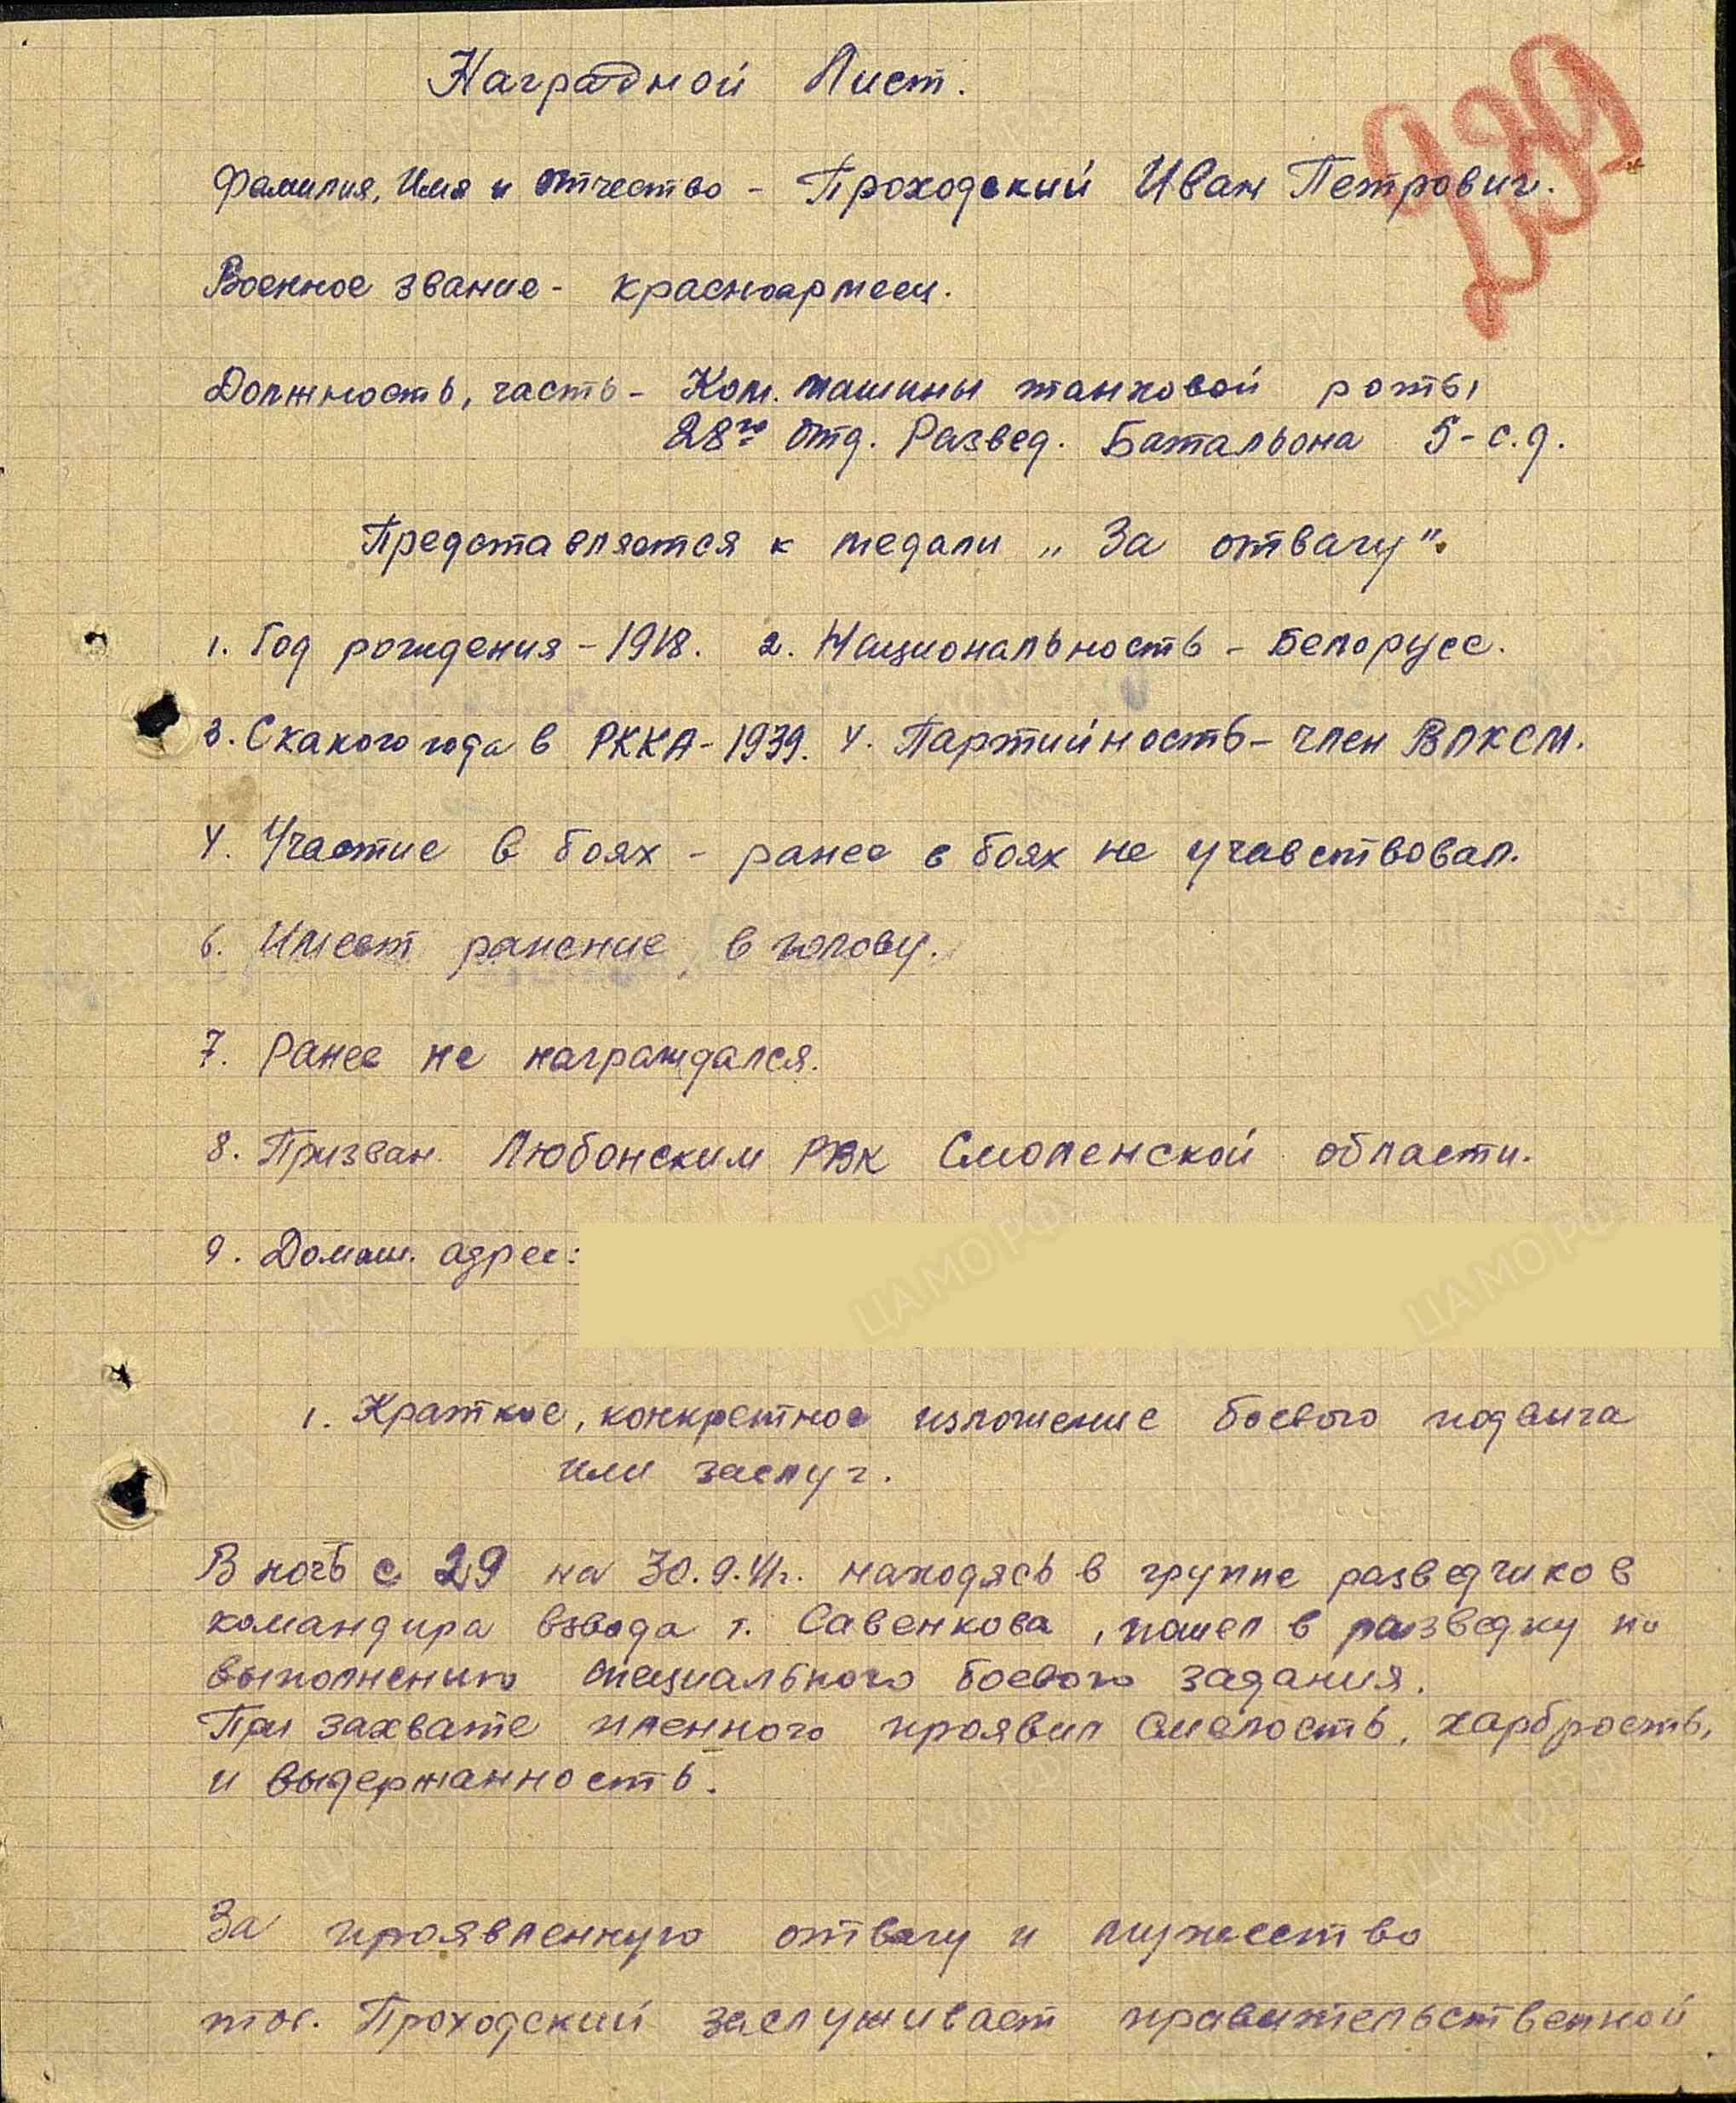 Наградной Лист.
239
Фамилия, Имя и отчество - Проходский Иван Петрович.
Военное звание - красноармеец.
Должность, часть - Ком. машины танковой роты
28го отд. Развед. Батальона 5-с.д.
Представляется к медали „За отвагу".
1. Год рождения - 1918. 2. Национальность - Белорусс.
3. Скакого года в РККА - 1939. 4. Партийность - член ВЛКСМ.
4. Участие в боях - ранее в боях не учавствовал.
6. Имеет ранение в голову.
7. Ранее не награждался.
8. Призван Любонским РВК Смоленской области.
9. Домаш. адрес:
1. Краткое, конкретное изложение боевого подвига
или заслуг.
В ночь с 29 на 30.9.41г. находясь в группе разведчиков
командира взвода т. Савенкова, пошел в разведку по
выполнению специального боевого задания.
При захвате пленного проявил смелость, харбрость,
и выдержанность.
За проявленную отвагу и мужество
тов. Проходский заслуживает правительственной
ЦАМО РФ